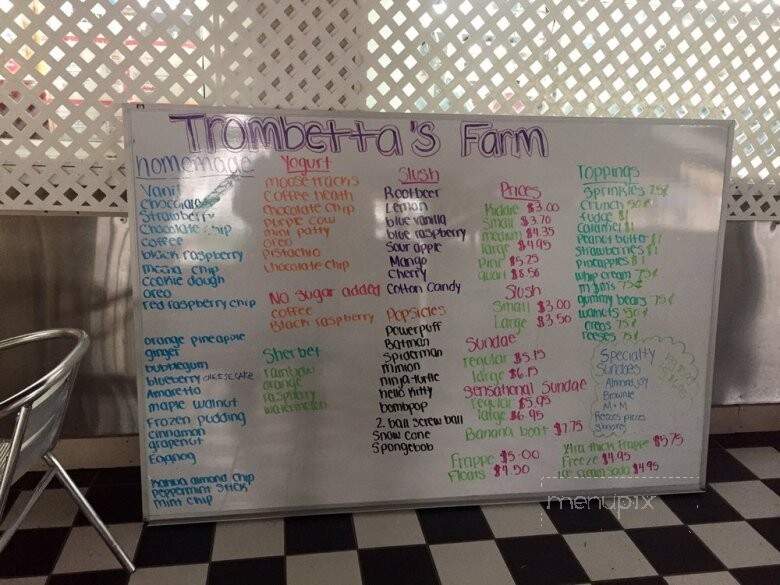 Trombetta's Farm
homemade
Vanilla
Chocolate
Strawberry
Chocolate chip
coffee
black raspberry
mocha chip
cookie dough
oreo
red raspberry chip
orange pineapple
ginger
bubblegum
blueberry CHEESE CAKE
Amaretto
maple walnut
Frozen pudding
cinnamon
grapenut
Eggnog
Kahlua almond chip
peppermint stick
mint chip
Yogurt
moose tracks
coffee heath
chocolate chip
purple cow
mint patty
oreo
pistachio
chocolate chip
No sugar added
coffee
Black raspberry
Sherbet
rainbow
orange
raspberry
watermelon
Slush
Rootbeer
Lemon
blue vanilla
blue raspberry
Sour apple
Mango
Cherry
Cotton Candy
Popsicles
powerpuff
Batman
Spiderman
minion
ninja-turtle
hello kitty
bombpop
2. ball screw ball
Snow cone
Spongebob
Prices
Kiddie $3.00
Small $3.70
medium $4.35
large $4.95
pint $5.25
quart $8.56
Slush
Small $3.00
Large $3.50
Sundae
regular $5.15
large $6.15
Sensational Sundae
regular $5.95
large $6.95
Banana boat $7.75
Frappe $5.00
Floats $4.50
Toppings
Sprinkles 25¢
Crunch 50¢
fudge $1
caramel $1
Peanut butter $1
strawberries $1
pineapples $1
whip cream 75¢
m&m's 75¢
gummy bears 75¢
walnuts 50¢
oreos 75¢
reeses 75¢
Specialty
Sundaes
Almond joy
Brownie
M+M
Reeses pieces
Xtra thick frappe $5.75
Freeze $4.95
ice cream soda $4.95
menupix